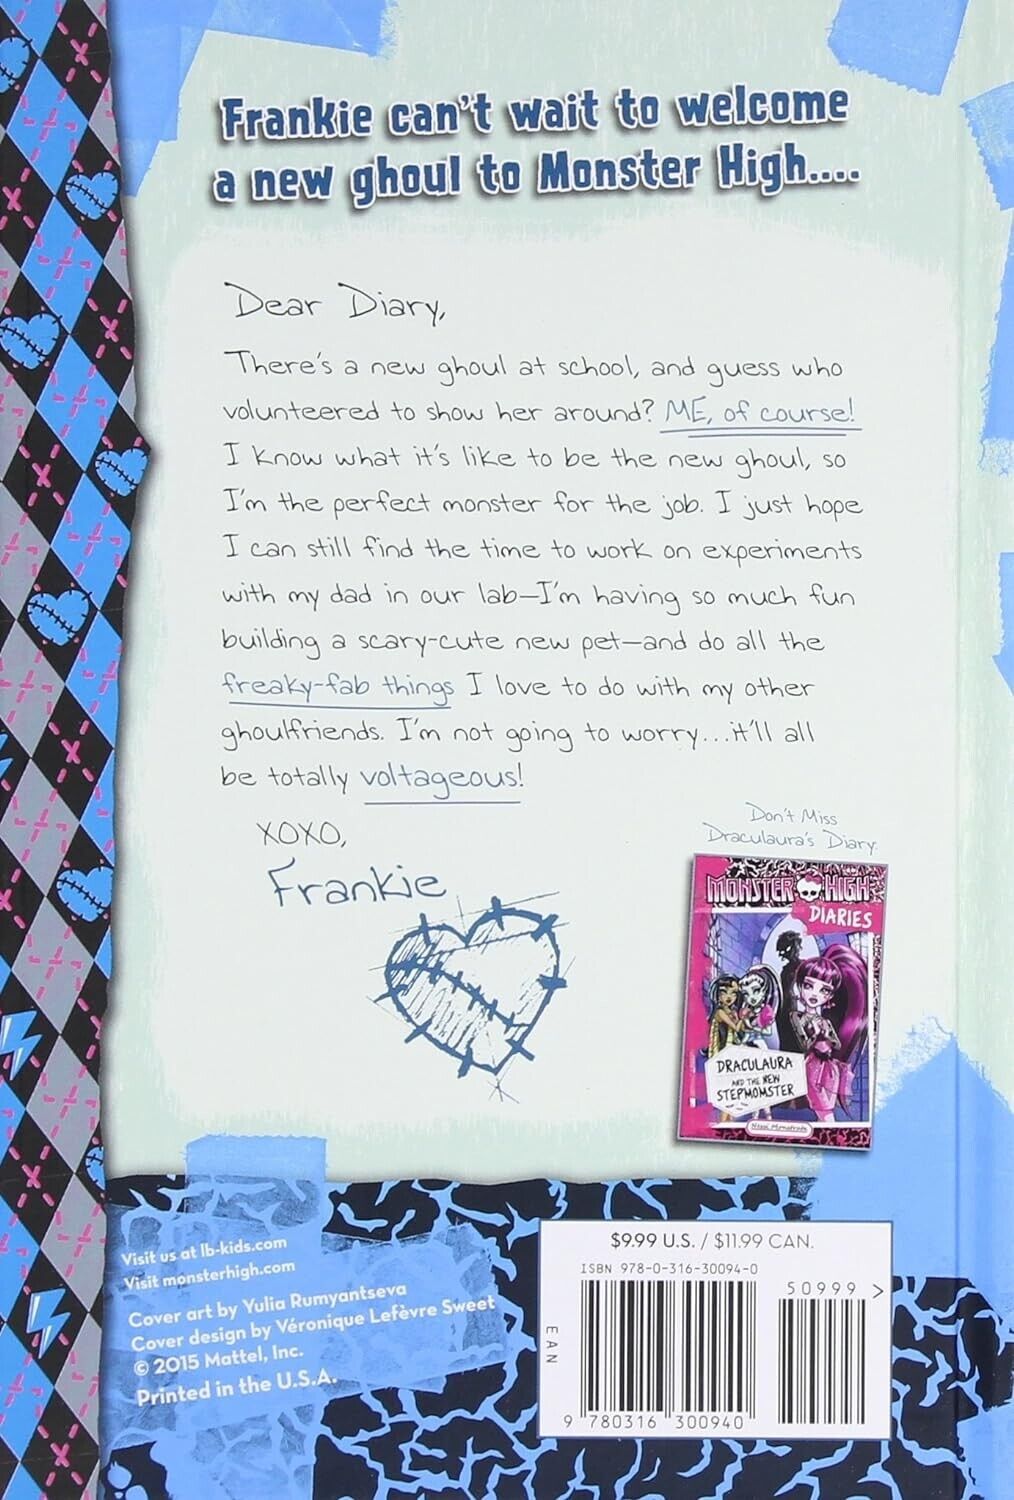 Frankie can't wait to welcome
a new ghoul to Monster High....
Dear Diary,
There's a new ghoul at school, and guess who
volunteered to show her around? ME, of course!
I know what it's like to be the new ghoul, so
I'm the perfect monster for the job. I just hope
I can still find the time to work on experiments
with my dad in our lab—I'm having so much fun
building a scary-cute new pet—and do all the
freaky-fab things I love to do with my other
ghoulfriends. I'm not going to worry...it'll all
be totally voltageous!
XOXO,
Frankie
Don't Miss
Draculaura's Diary:
MONSTER HIGH
DIARIES
DRACULAURA
AND THE NEW
STEPMOMSTER
Nessi Monstrata
Visit us at lb-kids.com
Visit monsterhigh.com
Cover art by Yulia Rumyantseva
Cover design by Véronique Lefèvre Sweet
© 2015 Mattel, Inc.
Printed in the U.S.A.
$9.99 U.S. / $11.99 CAN.
ISBN 978-0-316-30094-0
50999 >
EAN
9 780316 300940